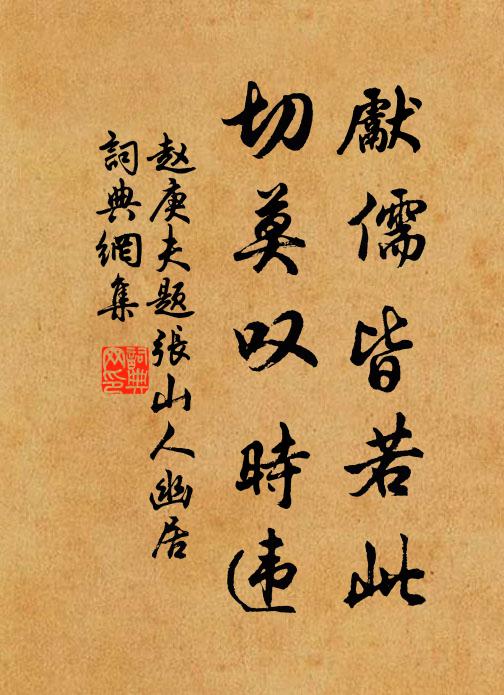 獻儒皆若此
切莫叹時违
赵庚夫题張山人幽居
詞典網集
詞典网印